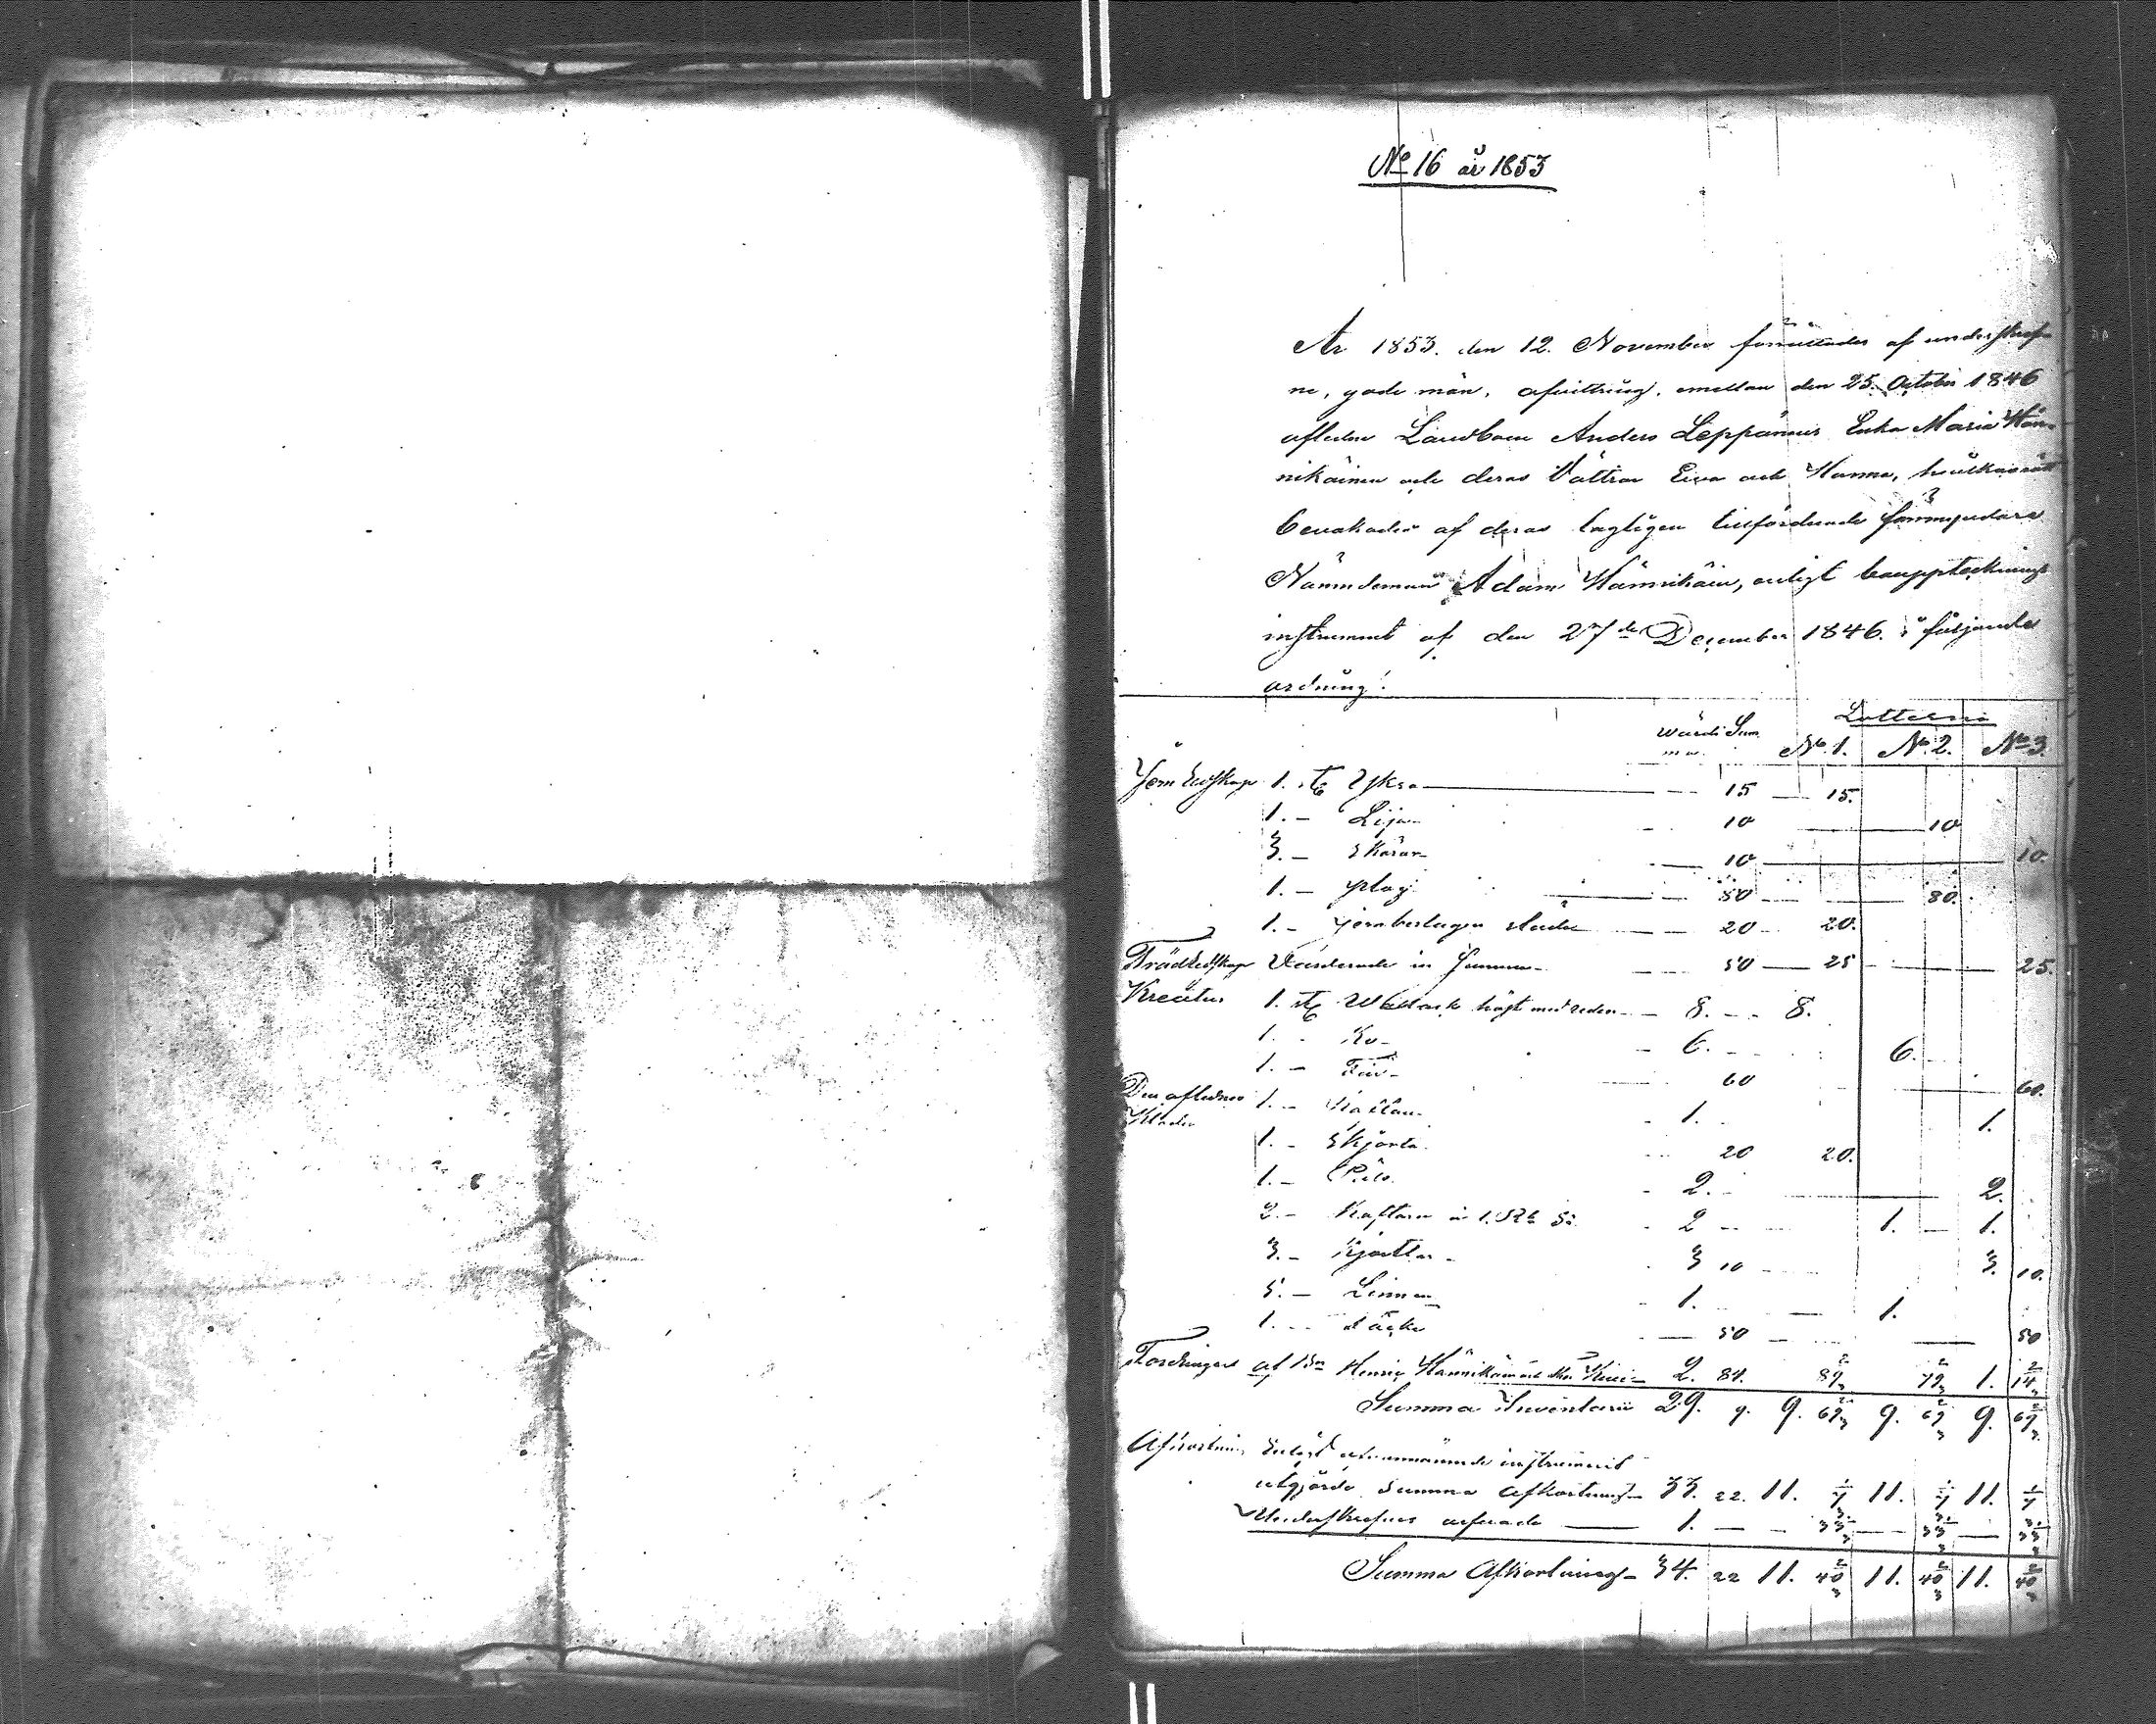 No 16 år 1853
År 1853. den 12. November förrättades af underskref-
ne, gode män, afvittring, emellan den 25. October 1846
afledne Landboen Anders Leppänens Enka Maria Hän-
nikäinen och deras Döttrar Eva och Hanna, hvilkas rätt
bevakades af deras lagligen tillförordnade förmyndare
Nämndeman Adam Hännikäin, enligt bouppteckningsinstrument af den 27de December 1846. i följande
ordning:
Lotterne
Värde Sum
ma. No. 1. No. 2. No 3.
Jern Redskap 1. st. Yxa 15 15.
1. Lija 10 10
3. Skäror 10 10.
1. Plog 80 80.
1. jernbeslagen släde 20 20.
Trädredskap Värderade in Summa 50 25 25.
Kreatur 1. st. Wallack häst med reden 8. 8.
1. Ko 6. 6.
1. Får 60 60.
Den aflednes 1. Kaftan 1. 1.
Kläder
1. Skjorta 20 20.
1. Päls 2. 2.
2. Kaftan à 1. Rub Sr. 2 1. 1.
3. Kjortlar 3 10 3. 10.
5. Linnen 1. 1.
1. Täcke 50 50
Fordringar af Bn Henric Hännikäin 2. 84. 89 2/3 79 2/3 1. 14 2/3
Summa Inventarii 29. 9. 9. 69 2/3 9. 69 2/3 9. 69 2/3
Afkortning Enligt ofvannämnde instrument
utgjorde Summa afkortning 33. 22. 11. 7 1/3 11. 7 1/3 11. 7 1/3
Underskrefnes arfvode 1. 33 1/3 33 1/3 33 1/3
Summa Afkortning 34. 22 11. 40 2/3 11. 40 2/3 11. 40 2/3